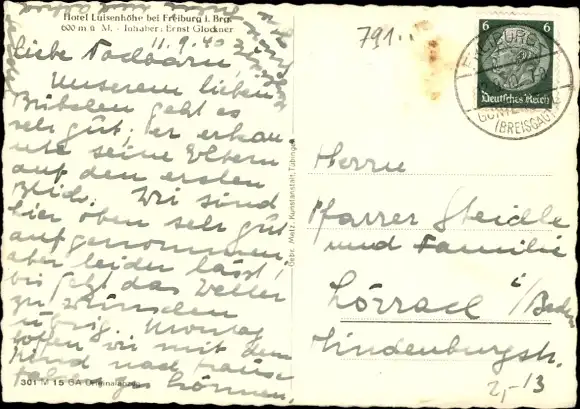 Hotel Luisenhöhe bei Freiburg i. Brg.
600 m ü M. - Inhaber: Ernst Glockner
11.9.40
liebe
Unserem lieben
geht es
sehr gut, er erkan
nte seine Eltern
auf den ersten
Blick. Wir sind
hier oben sehr gut
aufgenommen,
aber leider lässt
bis jetzt das Wetter
zu wünschen
übrig. Montag
hoffen wir mit dem
Kind nach Hause
können.
301 M 15 GA Originalabzug
Gebr. Metz, Kunstanstalt, Tübingen
791
6 6
Deutsches Reich
FREIBURG
(BREISGAU)
Herrn
Pfarrer Steidle
und Familie
Lörrach i/Baden
Hindenburgstr.
2,-13